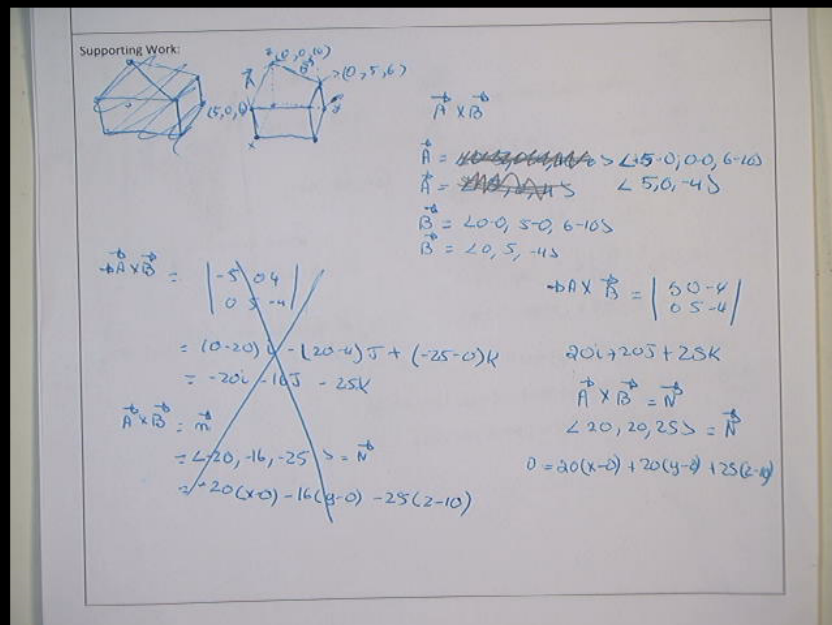 Supporting Work:
(0,0,10)
(0,5,6)
(5,0,
A
B
x
A × B
A = <5-0, 0-0, 6-10>
A = <5, 0, -4>
B = <0-0, 5-0, 6-10>
B = <0, 5, -4>
A × B = | -5 0 4 |
| 0 5 -4 |
= (0-20)i - (20-4)J + (-25-0)K
= -20i - 16J - 25K
A × B = n
= <-20, -16, -25> = N
= -20(x-0) - 16(y-0) - 25(z-10)
A × B = | 5 0 -4 |
| 0 5 -4 |
20i + 20J + 25K
A × B = N
<20, 20, 25> = N
0 = 20(x-0) + 20(y-0) + 25(z-10)